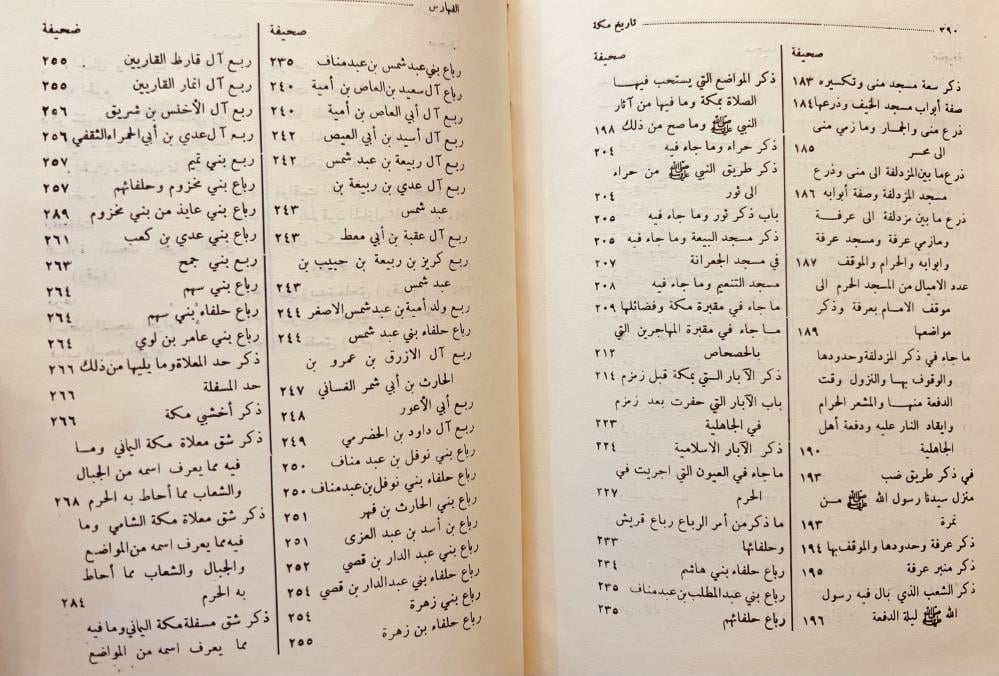 ٣٩٠ تاريخ مكة
صحيفة
ذكر سعة مسجد منى وتكسيره ١٨٣
صفة أبواب مسجد الخيف وذرعها ١٨٤
ذرع منى والجمار ومازمي منى
الى محسر ١٨٥
ذرع ما بين المزدلفة الى منى وذرع
مسجد المزدلفة وصفة أبوابه ١٨٦
ذرع ما بين مزدلفة الى عرفة
ومازمي عرفة ومسجد عرفة
وابوابه والحرام والموقف ١٨٧
عدد الاميال من المسجد الحرم الى
موقف الامام بعرفة وذكر
مواضعها ١٨٩
ما جاء في ذكر المزدلفة وحدودها
والوقوف بها والنزول وقت
الدفعة منها والمشعر الحرام
وايقاد النار عليه ودفعة أهل
الجاهلية ١٩٠
في ذكر طريق ضب ١٩٣
منزل سيدنا رسول الله ﷺ من
نمرة ١٩٣
ذكر عرفة وحدودها والموقف بها ١٩٤
ذكر منبر عرفة ١٩٥
ذكر الشعب الذي بال فيه رسول
الله ﷺ ليلة الدفعة ١٩٦
صحيفة
ذكر المواضع التي يستحب فيها
الصلاة بمكة وما فيها من آثار
النبي ﷺ وما صح من ذلك ١٩٨
ذكر حراء وما جاء فيه ٢٠٤
ذكر طريق النبي ﷺ من حراء
الى ثور ٢٠٤
باب ذكر ثور وما جاء فيه ٢٠٥
ذكر مسجد البيعة وما جاء فيه ٢٠٥
في مسجد الجعرانة ٢٠٧
مسجد التنعيم وما جاء فيه ٢٠٨
ما جاء في مقبرة مكة وفضائلها ٢٠٩
ما جاء في مقبرة المهاجرين التي
بالحصحاص ٢١٢
ذكر الآبار التي بمكة قبل زمزم ٢١٤
باب الآبار التي حفرت بعد زمزم
في الجاهلية ٢٢٣
ذكر الآبار الاسلامية ٢٢٤
ما جاء في العيون التي اجريت في
الحرم ٢٢٧
ما ذكر من أمر الرباع رباع قريش
وحلفائها ٢٣٣
رباع حلفاء بني هاشم ٢٣٤
رباع بني عبد المطلب بن عبد مناف ٢٣٥
رباع حلفائهم ٢٣٥
الفهارس
صحيفة
رباع بني عبد شمس بن عبد مناف ٢٣٥
رباع آل سعيد بن العاص بن أمية ٢٤٠
ربع آل أبي العاص بن أمية ٢٤٠
ربع آل أسيد بن أبي العيص ٢٤٢
ربع آل ربيعة بن عبد شمس ٢٤٢
ربع آل عدي بن ربيعة بن
عبد شمس ٢٤٣
ربع آل عقبة بن أبي معط ٢٤٣
ربع كريز بن ربيعة بن حبيب بن
عبد شمس ٢٤٣
ربع ولد أمية بن عبد شمس الاصغر ٢٤٤
رباع حلفاء بني عبد شمس ٢٤٤
ربع آل الازرق بن عمرو بن
الحارث بن أبي شمر الغساني ٢٤٧
ربع أبي الأعور ٢٤٨
ربع آل داود بن الحضرمي ٢٤٩
رباع بني نوفل بن عبد مناف ٢٥٠
رباع حلفاء بني نوفل بن عبد مناف ٢٥٠
رباع بني الحارث بن فهر ٢٥١
رباع بن أسد بن عبد العزى ٢٥١
رباع بني عبد الدار بن قصي ٢٥٢
رباع حلفاء بني عبد الدار بن قصي ٢٥٤
رباع بني زهرة ٢٥٤
رباع حلفاء بن زهرة ٢٥٥
ضحيفة
ربع آل قارظ القاريين ٢٥٥
ربع آل انمار القاريين ٢٥٥
ربع آل الأخنس بن شريق ٢٥٦
ربع آل عدي بن أبي الحمراء الثقفي ٢٥٦
ربع بني تيم ٢٥٧
رباع بني مخزوم وحلفائهم ٢٥٧
رباع بني عايذ من بني مخزوم ٢٨٩
رباع بني عدي بن كعب ٢٦١
ربع بني جمح ٢٦٣
رباع بني سهم ٢٦٤
رباع حلفاء بني سهم ٢٦٤
رباع بني عامر بن لوي ٢٦٤
ذكر حد المعلاة وما يليها من ذلك ٢٦٦
حد المسفلة ٢٦٦
ذكر أخشبي مكة ٢٦٦
ذكر شق معلاة مكة اليماني وما
فيه مما يعرف اسمه من الجبال
والشعاب مما أحاط به الحرم ٢٦٨
ذكر شق معلاة مكة الشامي وما
فيه مما يعرف اسمه من المواضع
والجبال والشعاب مما أحاط
به الحرم ٢٨٤
ذكر شق مسفلة مكة اليماني وما فيه
مما يعرف اسمه من المواضع